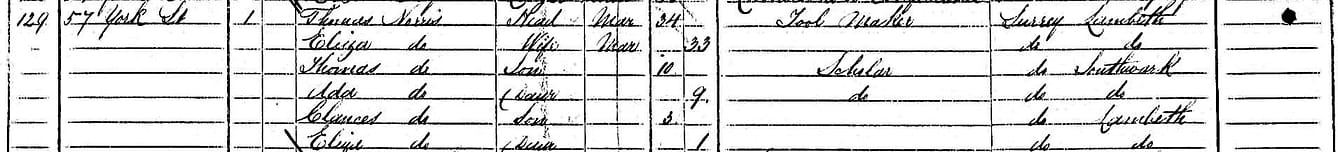 129 57 York St 1 Thomas Norris Head Mar 34 Tool Maker Surrey Lambeth
Eliza do Wife Mar 33 do do
Thomas do Son 10 Scholar do Southwark
Ada do Daur 9 do do do
Clances do Son 3 do Lambeth
Eliza do Daur 1 do do